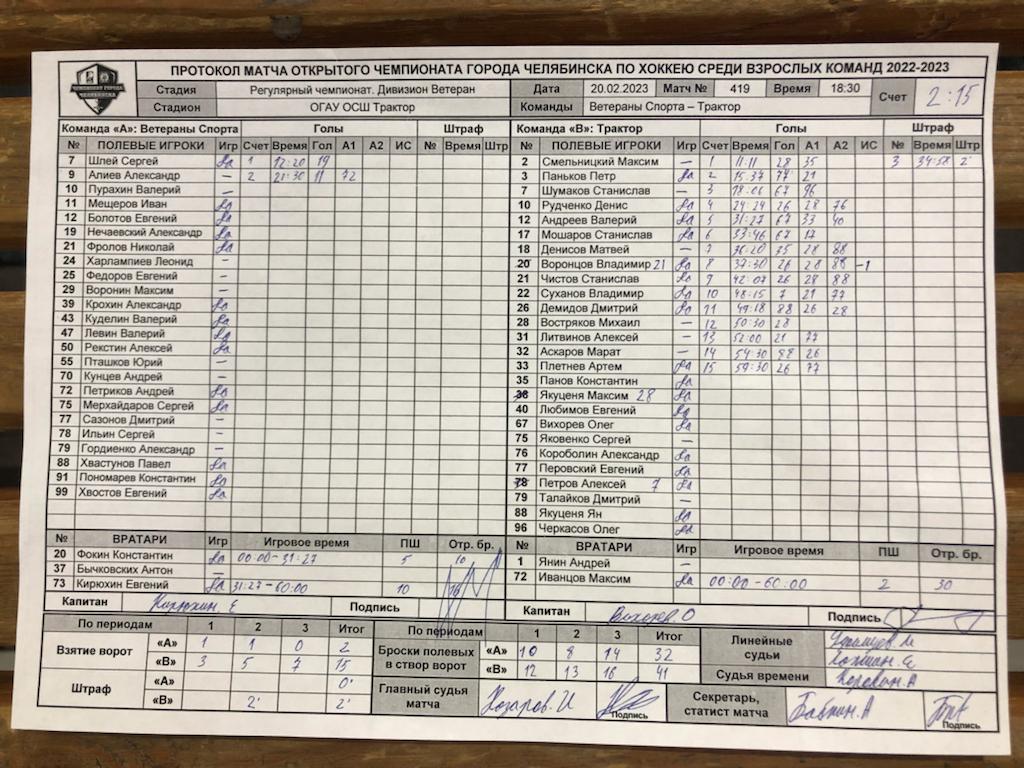 ПРОТОКОЛ МАТЧА ОТКРЫТОГО ЧЕМПИОНАТА ГОРОДА ЧЕЛЯБИНСКА ПО ХОККЕЮ СРЕДИ ВЗРОСЛЫХ КОМАНД 2022-2023
Стадия Регулярный чемпионат. Дивизион Ветеран Дата 20.02.2023 Матч № 419 Время 18:30 Счет 2:15
Стадион ОГАУ ОСШ Трактор Команды Ветераны Спорта – Трактор
Команда «А»: Ветераны Спорта Голы Штраф
№ ПОЛЕВЫЕ ИГРОКИ Игр Счет Время Гол А1 А2 ИС № Время Штр
7 Шлей Сергей Да 1 12:20 19
9 Алиев Александр – 2 21:30 11 72
10 Пурахин Валерий –
11 Мещеров Иван Да
12 Болотов Евгений Да
19 Нечаевский Александр Да
21 Фролов Николай Да
24 Харлампиев Леонид –
25 Федоров Евгений –
29 Воронин Максим –
39 Крохин Александр Да
43 Куделин Валерий Да
47 Левин Валерий Да
50 Рекстин Алексей Да
55 Пташков Юрий –
70 Кунцев Андрей –
72 Петриков Андрей Да
75 Мерхайдаров Сергей Да
77 Сазонов Дмитрий –
78 Ильин Сергей –
79 Гордиенко Александр –
88 Хвастунов Павел Да
91 Пономарев Константин Да
99 Хвостов Евгений Да
№ ВРАТАРИ Игр Игровое время ПШ Отр. бр.
20 Фокин Константин Да 00:00-31:27 5 10
37 Бычковских Антон –
73 Кирюхин Евгений Да 31:27-60:00 10 16
Капитан Кирюхин Е Подпись
Команда «В»: Трактор Голы Штраф
№ ПОЛЕВЫЕ ИГРОКИ Игр Счет Время Гол А1 А2 ИС № Время Штр
2 Смельницкий Максим – 1 11:11 28 35 3 34:58 2'
3 Паньков Петр Да 2 15:37 77 21
7 Шумаков Станислав – 3 18:01 67 96
10 Рудченко Денис Да 4 24:24 26 28 76
12 Андреев Валерий Да 5 31:27 67 33 40
17 Мошаров Станислав Да 6 33:46 67 17
18 Денисов Матвей – 7 36:20 35 28 88
20 Воронцов Владимир 21 Да 8 37:30 26 28 88 -1
21 Чистов Станислав Да 9 42:07 26 28 88
22 Суханов Владимир Да 10 48:15 7 21 77
26 Демидов Дмитрий Да 11 49:18 88 26 28
28 Востряков Михаил – 12 50:30 28
31 Литвинов Алексей – 13 52:00 21 77
32 Аскаров Марат – 14 54:30 88 26
33 Плетнев Артем Да 15 59:30 26 77
35 Панов Константин Да
38 Якуценя Максим 28 Да
40 Любимов Евгений Да
67 Вихорев Олег Да
75 Яковенко Сергей –
76 Короболин Александр Да
77 Перовский Евгений Да
78 Петров Алексей 7 Да
79 Талайков Дмитрий –
88 Якуценя Ян Да
96 Черкасов Олег Да
№ ВРАТАРИ Игр Игровое время ПШ Отр. бр.
1 Янин Андрей –
72 Иванцов Максим Да 00:00-60:00 2 30
Капитан Вихорев О Подпись
По периодам 1 2 3 Итог
Взятие ворот «А» 1 1 0 2
«В» 3 5 7 15
Штраф «А» 0'
«В» 2' 2'
По периодам 1 2 3 Итог
Броски полевых в створ ворот «А» 10 8 14 32
«В» 12 13 16 41
Главный судья матча Назаров И Подпись
Линейные судьи
Судья времени
Секретарь, статист матча Бабкин А Подпись